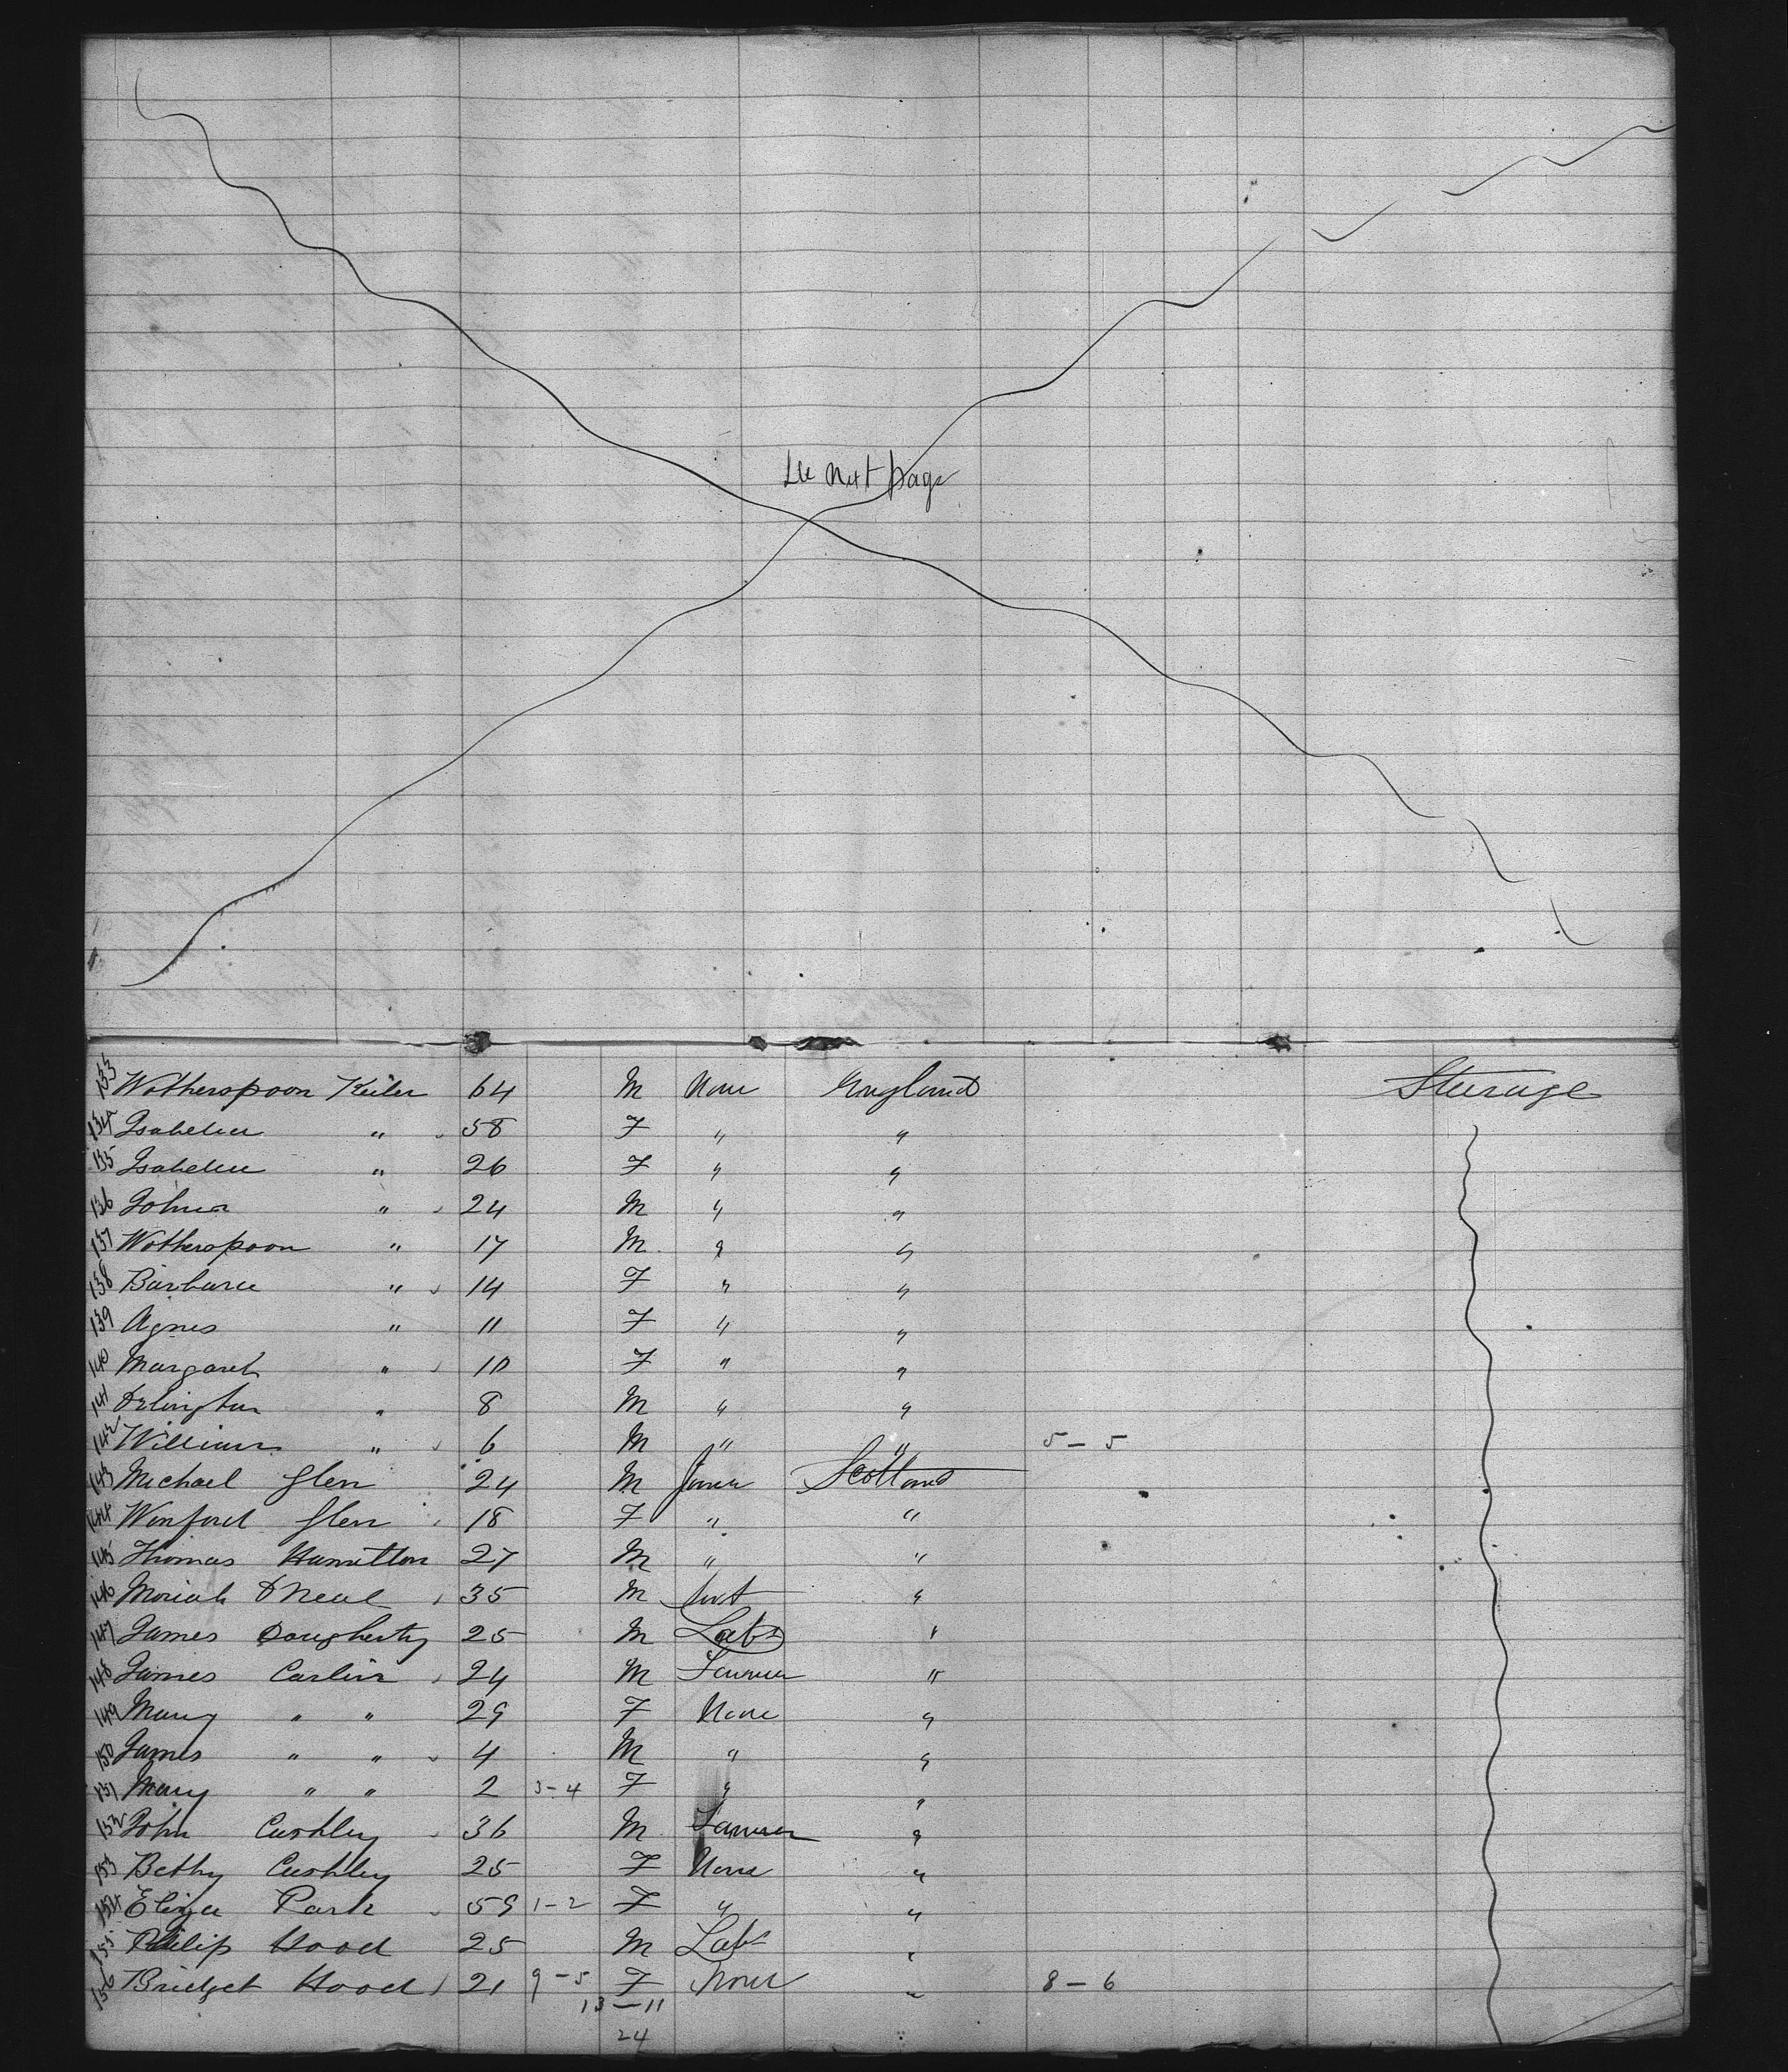 See next page
133 Wotherspoon Keiler 64 M None England Steerage
134 Isabella " 58 F " "
135 Isabella " 26 F " "
136 John " 24 M " "
137 Wotherspoon " 17 M " "
138 Barbara " 14 F " "
139 Agnes " 11 F " "
140 Margaret " 10 F " "
141 " 8 M " "
142 William " 6 M " " 5-5
143 Michael Glen 24 M Scotland
144 Winford Glen 18 F " "
145 Thomas Hamilton 27 M " "
146 Moriah O'Neal 35 M "
147 James Dougherty 25 M Labr "
148 James Carlin 24 M Farmer "
149 Mary " " 29 F None "
150 James " " 4 M " "
151 Mary " " 2 3-4 F " "
152 John Cushley 36 M Farmer "
153 Bethy Cushley 25 F None "
154 Eliza Park 59 1-2 F " "
155 Philip Hood 25 M Labr "
156 Bridget Hood 21 9-5 F None " 8-6
13-11
24